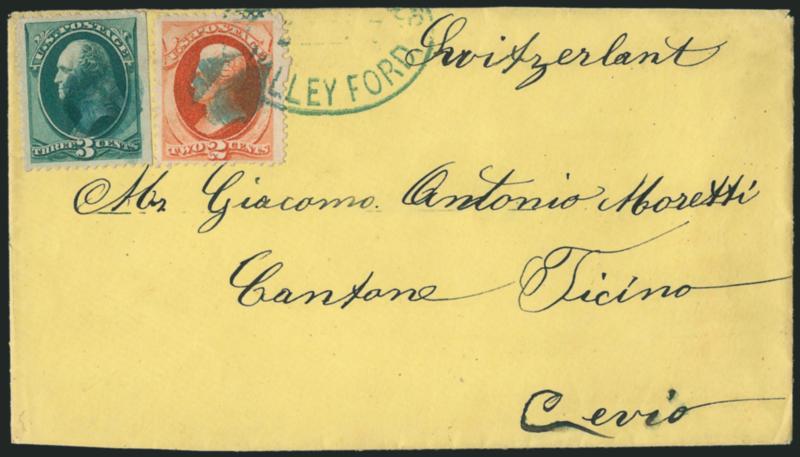 U.S. POSTAGE
THREE 3 CENTS
U.S. POSTAGE
TWO 2 CENTS
LLEY FORD
Switzerlant
Mr Giacomo Antonio Moretti
Cantone Ticino
Cevio